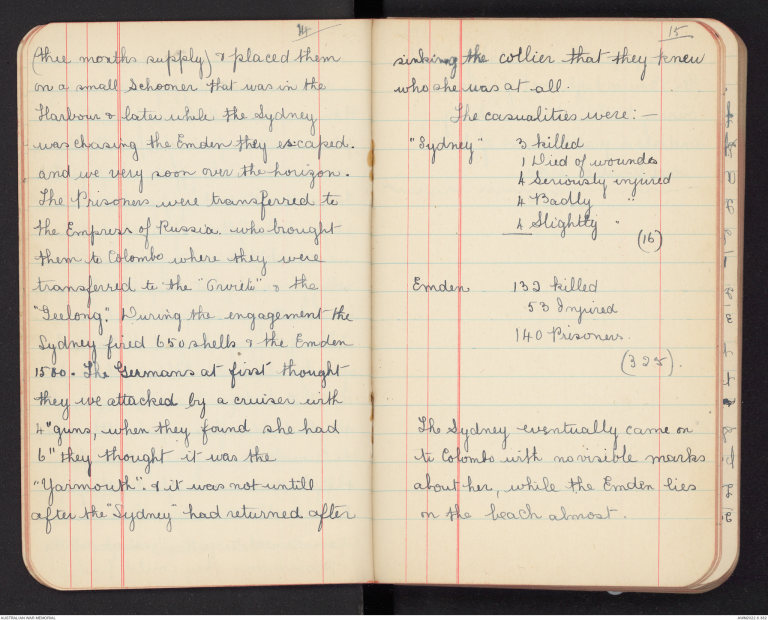 14
(thee months supply) & placed them
on a small Schooner that was in the
Harbour & later while the Sydney
was chasing the Emden they escaped.
and we very soon over the horizon.
The Prisoners were transferred to
the Empress of Russia. who brought
them to Colombo where they were
transferred to the "Orvieto" & the
"Geelong". During the engagement the
Sydney fired 650 shells & the Emden
1500. The Germans at first thought
they we attacked by a cruiser with
4" guns, when they found she had
6" they thought it was the
"Yarmouth". & it was not untill
after the "Sydney" had returned after
15
sinking the collier that they knew
who she was at all.
The casualities were: —
"Sydney" 3 killed
1 Died of woundes
4 Seriously injured
4 Badly "
4 Slightly "
(16)
Emden 132 killed
53 Injured
140 Prisoners.
(325).
The Sydney eventually came on
to Colombo with no visible marks
about her, while the Emden lies
on the beach almost.
AUSTRALIAN WAR MEMORIAL